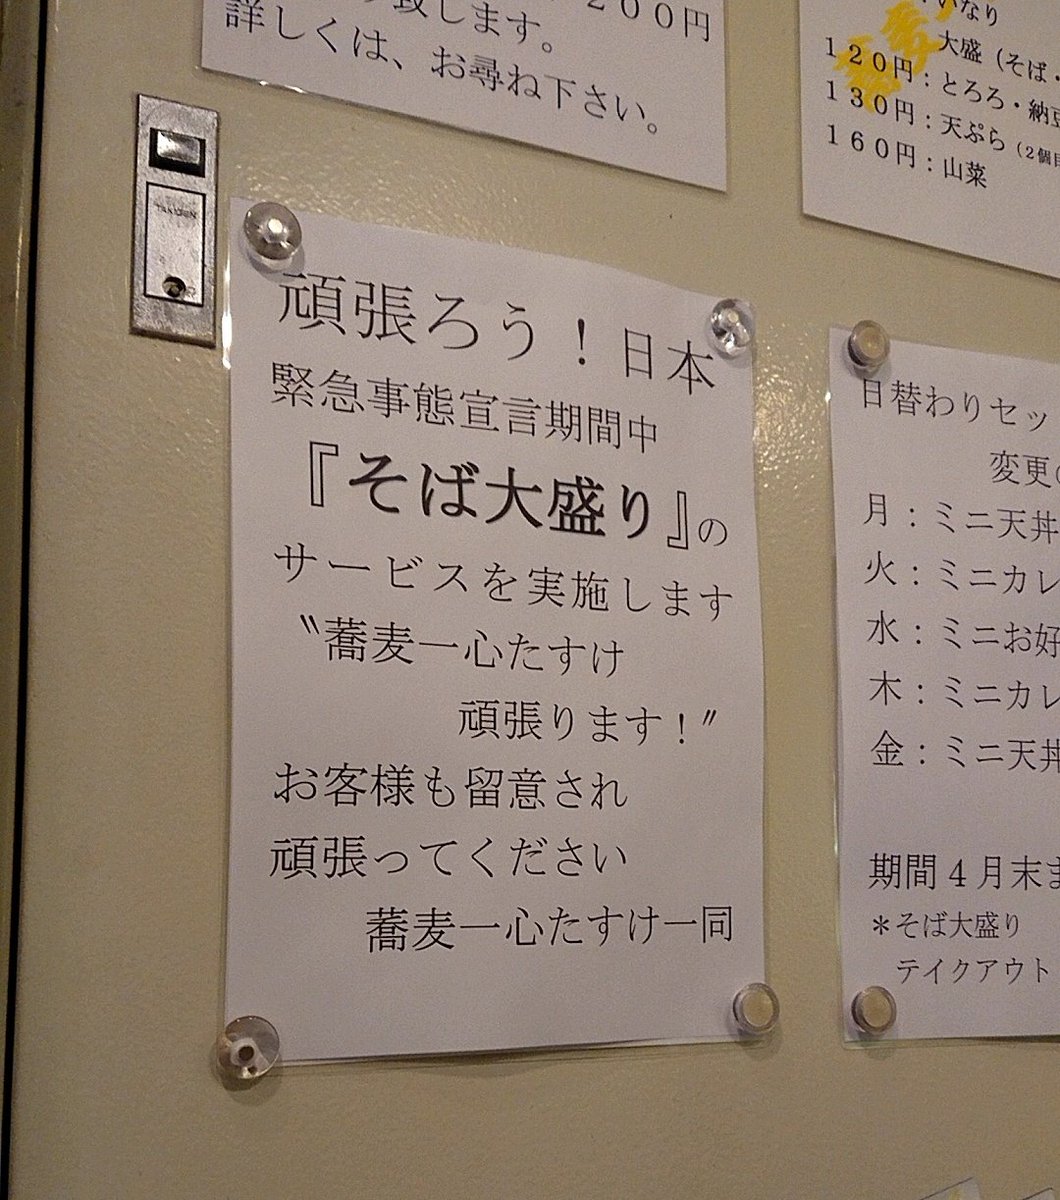 ２００円
致します。
詳しくは、お尋ね下さい。
いなり
大盛（そば・
１２０円：とろろ・納豆
１３０円：天ぷら（２個目
１６０円：山菜
TAKIGEN
頑張ろう！日本
緊急事態宣言期間中
『そば大盛り』の
サービスを実施します
〝蕎麦一心たすけ
頑張ります！〞
お客様も留意され
頑張ってください
蕎麦一心たすけ一同
日替わりセッ
変更
月：ミニ天丼
火：ミニカレ
水：ミニお好
木：ミニカレ
金：ミニ天丼
期間４月末ま
＊そば大盛り
テイクアウト